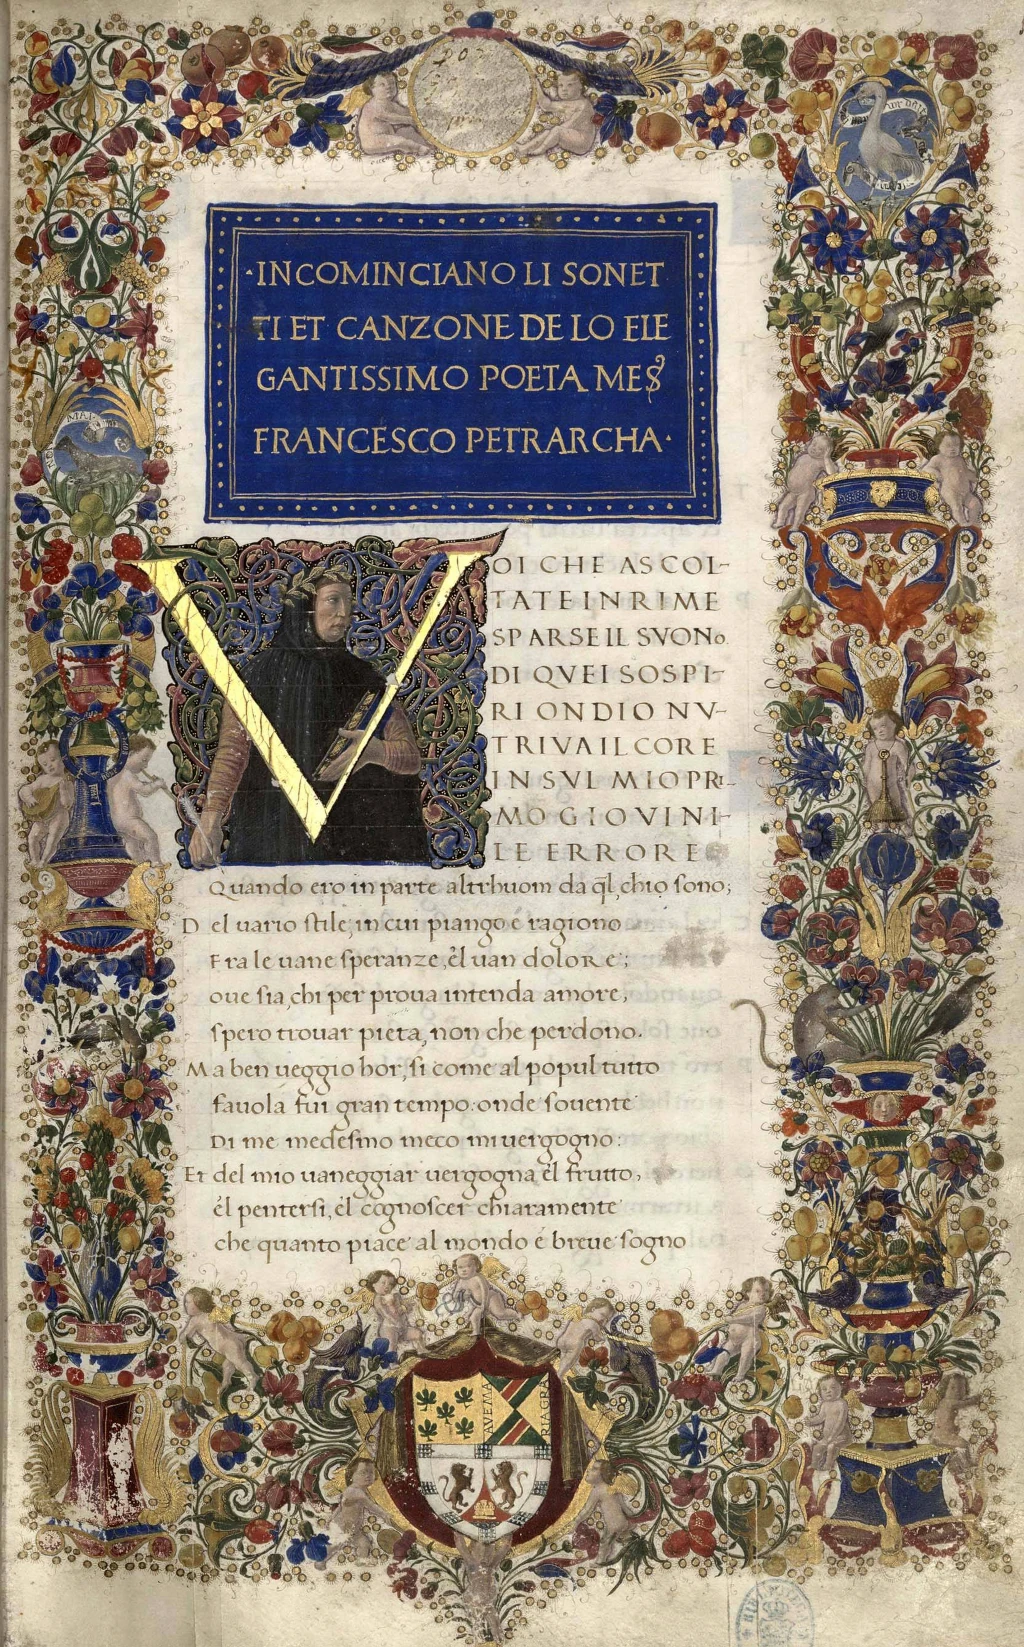 ·INCOMINCIANO LI SONET
TI ET CANZONE DE LO ELE
GANTISSIMO POETA MES̃
FRANCESCO PETRARCHA·
VOI CHE ASCOL-
TATE IN RIME
SPARSE IL SVONo
DI QVEI SOSPI-
RI ONDIO NV-
TRIVA IL CORE
IN SVL MIO PRI-
MO GIOVINI-
LE ERRORE
Quando ero in parte altrhuom da q̃l, chio sono;
Del uario stile, in cui piango e ragiono
Fra le uane speranze, e'l uan dolore;
oue sia, chi per proua intenda amore,
spero trouar pieta, non che perdono.
Ma ben ueggio hor, si come al popul tutto
fauola fui gran tempo: onde souente
Di me medesmo meco mi uergogno:
Et del mio uaneggiar uergogna e'l frutto,
e'l pentersi, e'l cognoscer chiaramente
che quanto piace al mondo é breue sogno
AVE MA
RIA GRA